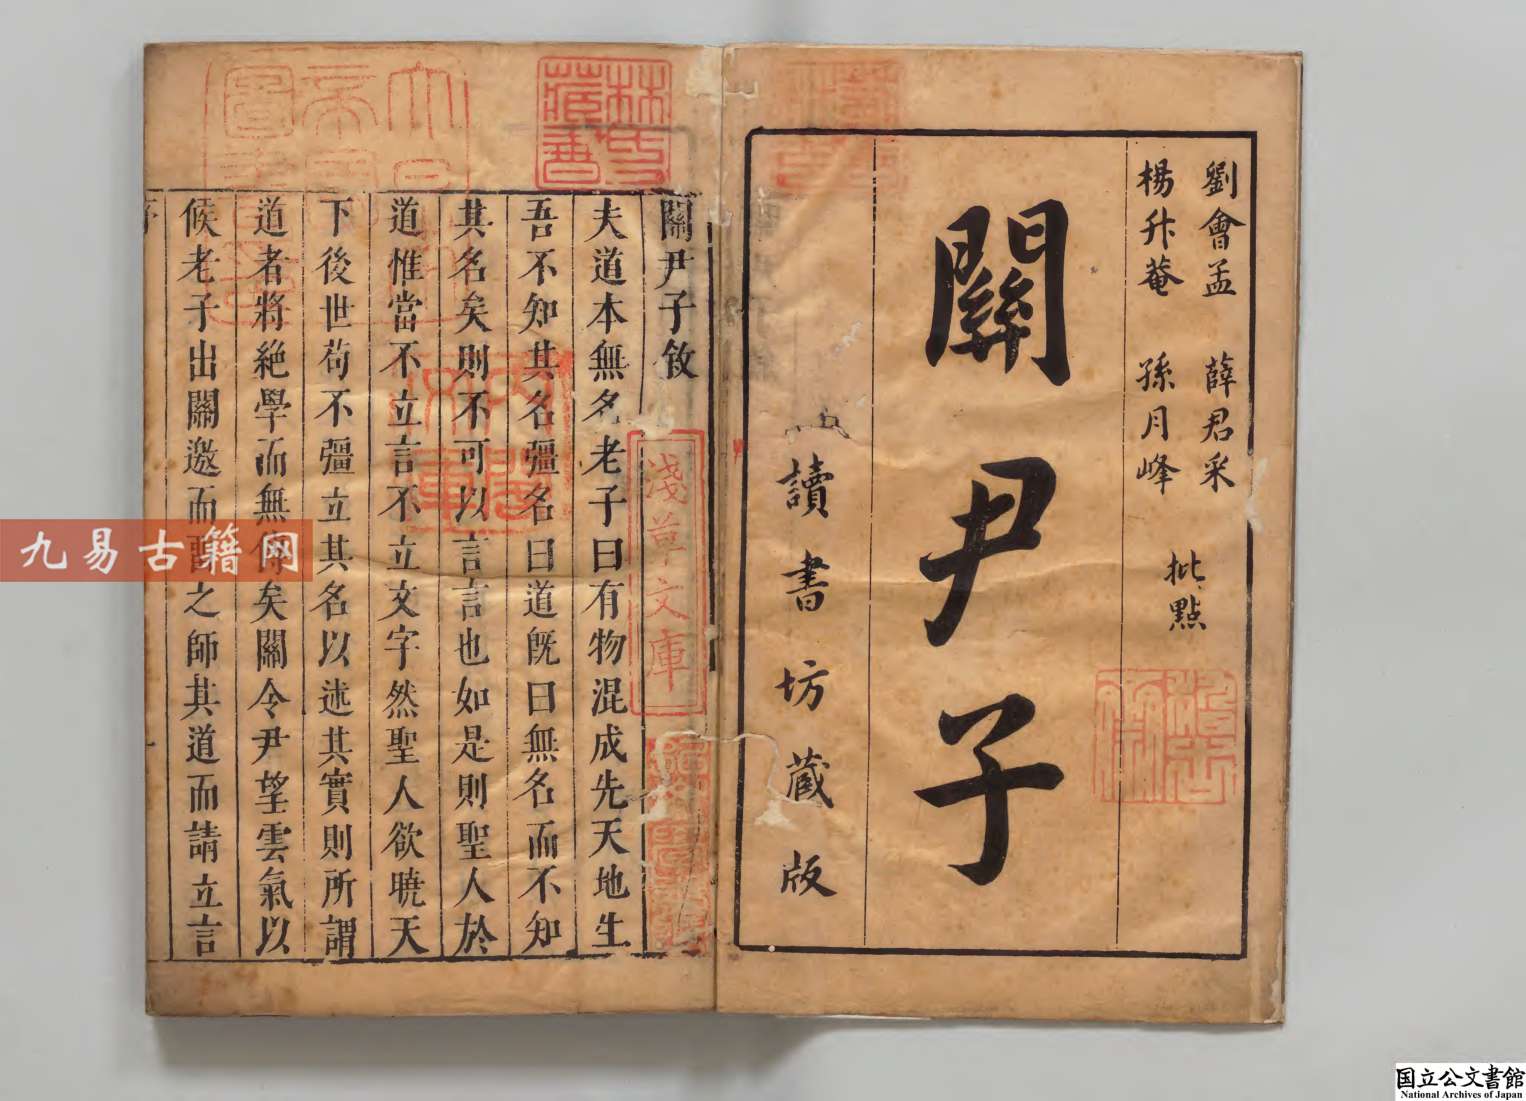 劉會孟 薛君采
楊升菴 孫月峰
批點
關尹子
讀書坊藏版
關尹子敘
夫道本無名老子曰有物混成先天地生
吾不知其名彊名曰道旣曰無名而不知
其名矣則不可以言言也如是則聖人於
道惟當不立言不立文字然聖人欲曉天
下後世苟不彊立其名以述其實則所謂
道者將絕學而無傳矣關令尹望雲氣以
候老子出關邀而之師其道而請立言
序
一
林氏藏書
淺草文庫
九易古籍网
国立公文書館
National Archives of Japan